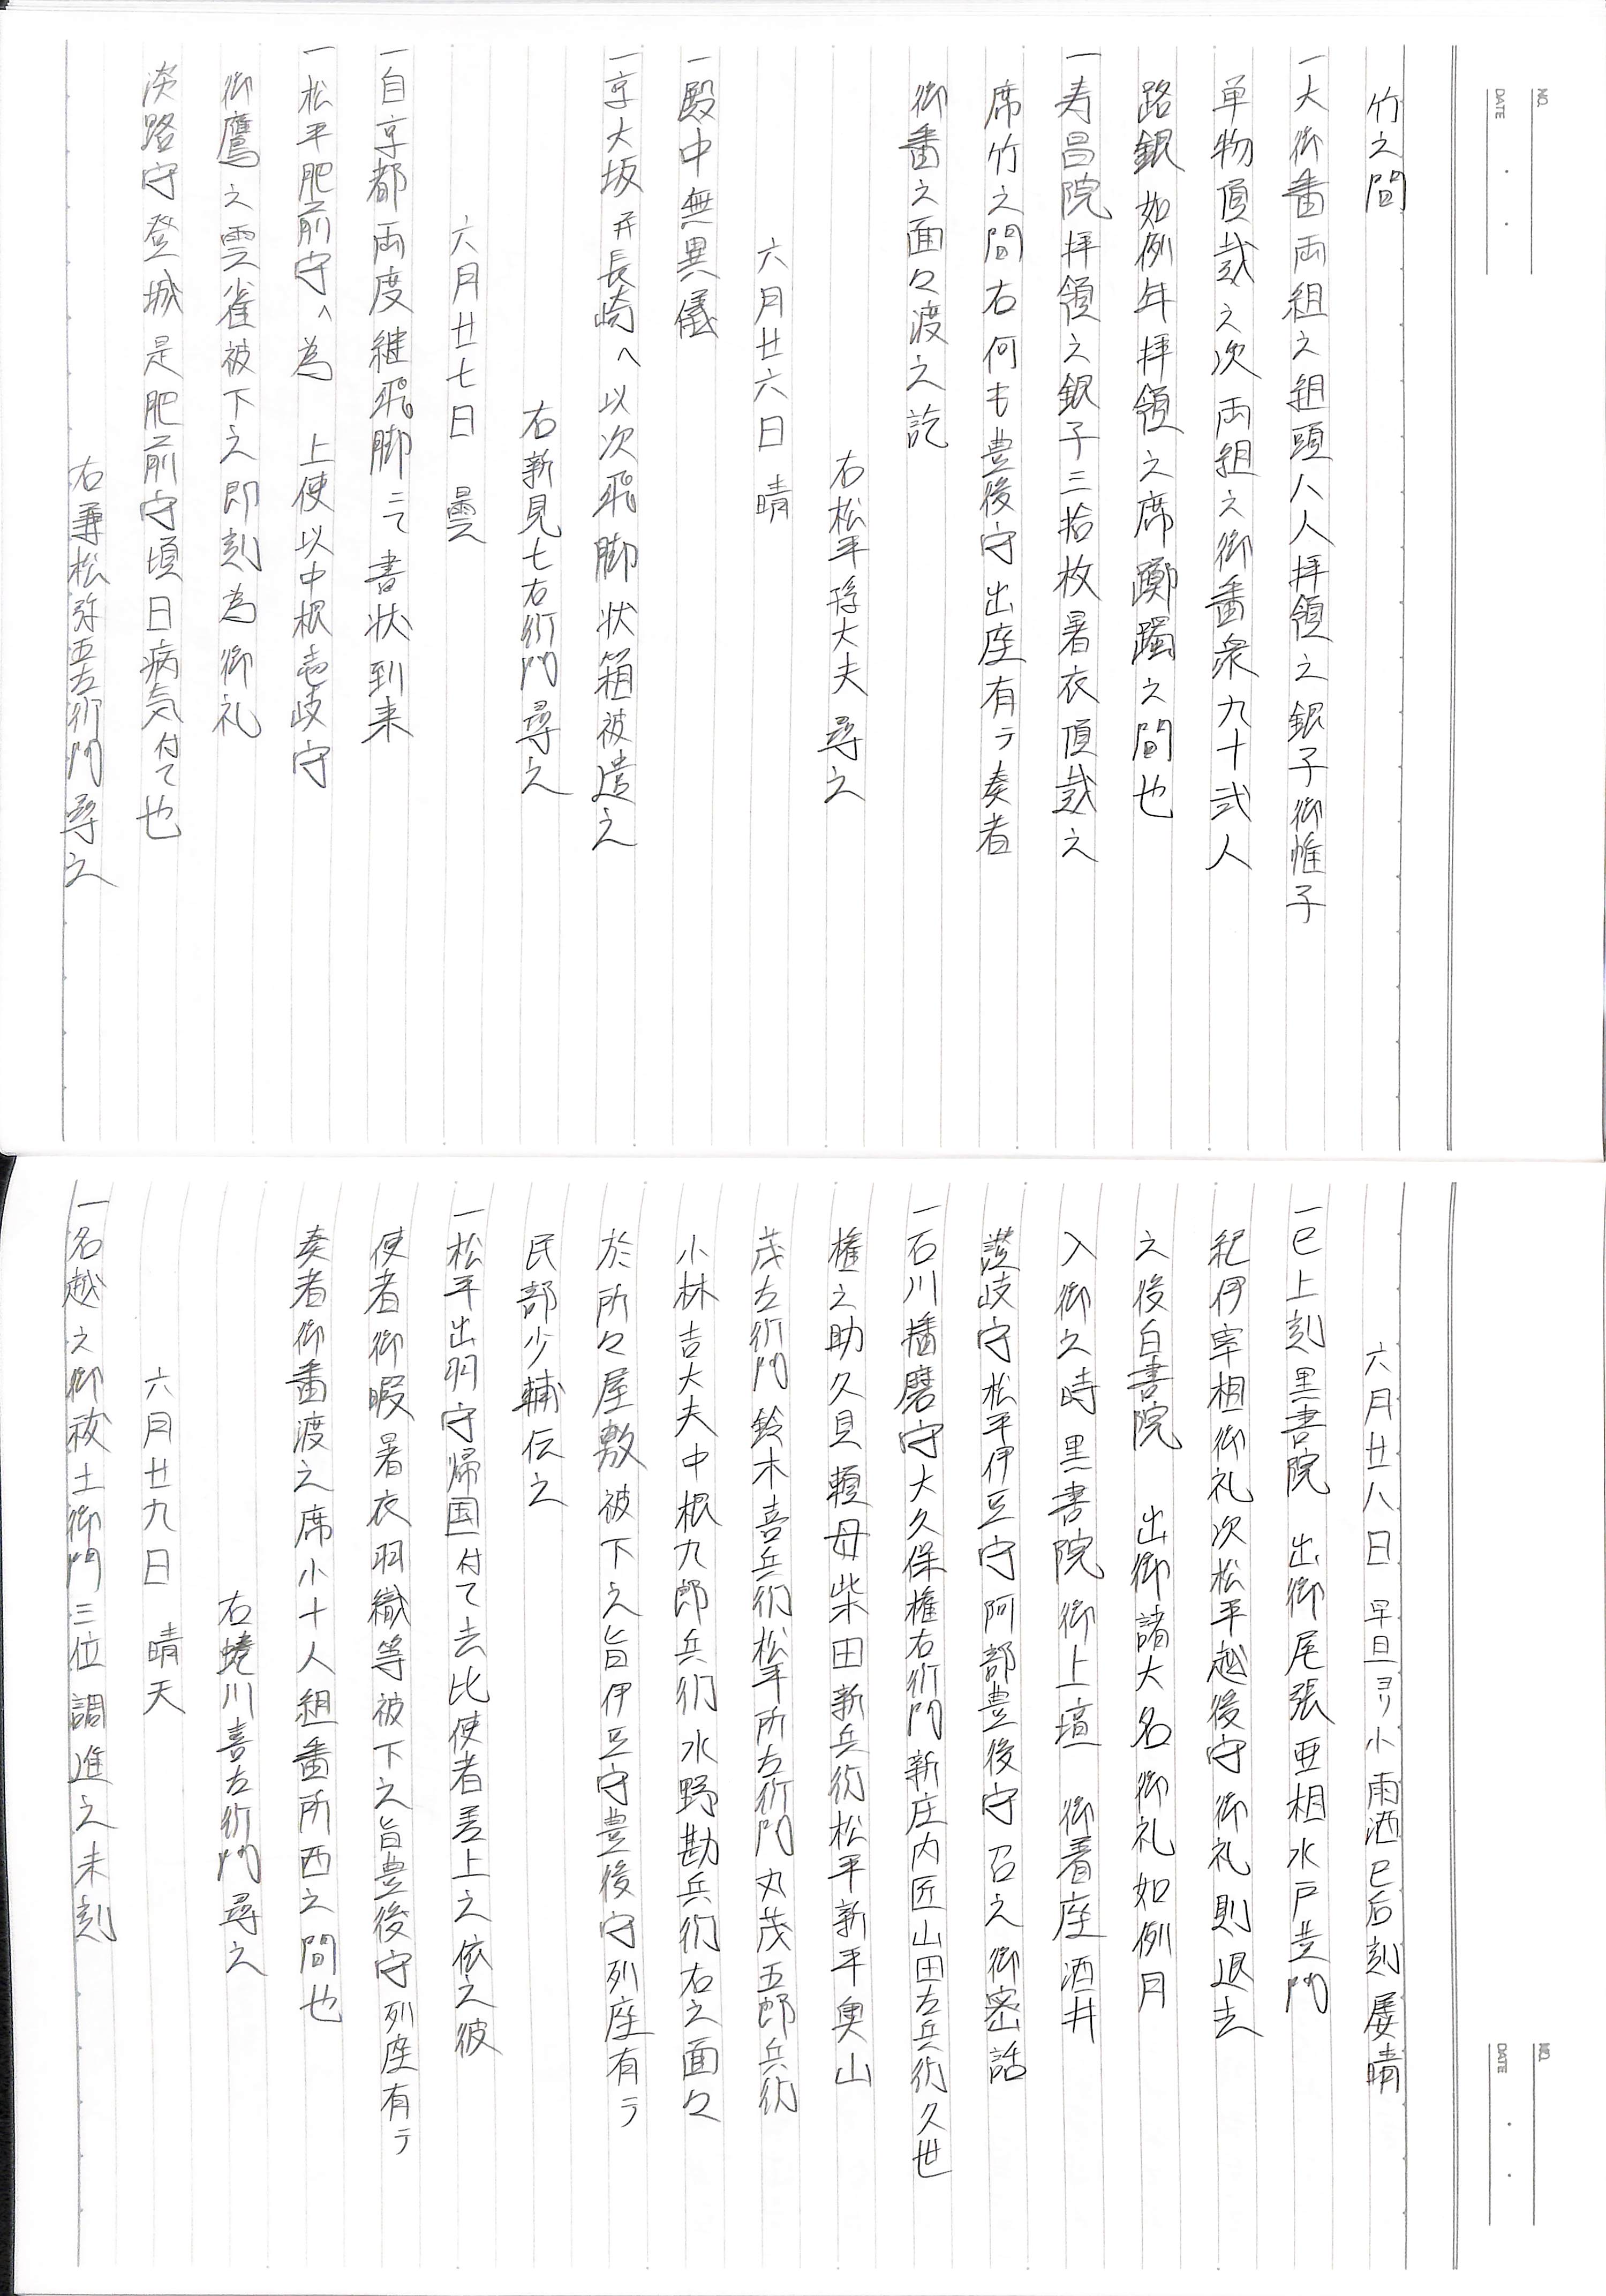 竹之間
一大御番両組之組頭八人拝領之銀子御惟子
単物頂戴之次両組之御番衆九十弐人
路銀如例年拝領之席躑躅之間也
一寿昌院拝領之銀子三拾枚暑衣頂戴之
席竹之間右何も豊後守出座有テ奏者
御番之面々渡之訖
右松平孫大夫尋之
六月廿六日 晴
一殿中無異儀
一京大坂并長崎へ以次飛脚状箱被遣之
右新見七右衛門尋之
六月廿七日 曇
一自京都両度継飛脚ニて書状到来
一松平肥前守へ為 上使以中根壱岐守
御鷹之雲雀被下之即刻為御礼
淡路守登城是肥前守頃日病気付て也
右兼松弥五左衛門尋之
NO.
DATE
六月廿八日 早旦ヨリ小雨洒巳后刻屡晴
一巳上刻黒書院 出御尾張亜相水戸黄門
紀伊宰相御礼次松平越後守御礼則退去
之後白書院 出御諸大名御礼如例月
入御之時黒書院御上壇 御着座酒井
讃岐守松平伊豆守阿部豊後守召之御密話
一石川播磨守大久保権右衛門新庄内匠山田左兵衛久世
権之助久貝頼母柴田新兵衛松平新平奥山
茂左衛門鈴木喜兵衛松平所左衛門丸茂五郎兵衛
小林吉大夫中根九郎兵衛水野勘兵衛右之面々
於所々屋敷被下之旨伊豆守豊後守列座有テ
民部少輔伝之
一松平出羽守帰国付て去比使者差上之依之彼
使者御暇暑衣羽織等被下之旨豊後守列座有テ
奏者御番渡之席小十人組番所西之間也
右蜷川喜左衛門尋之
六月廿九日 晴天
一名越之御祓土御門三位調進之未刻
NO.
DATE